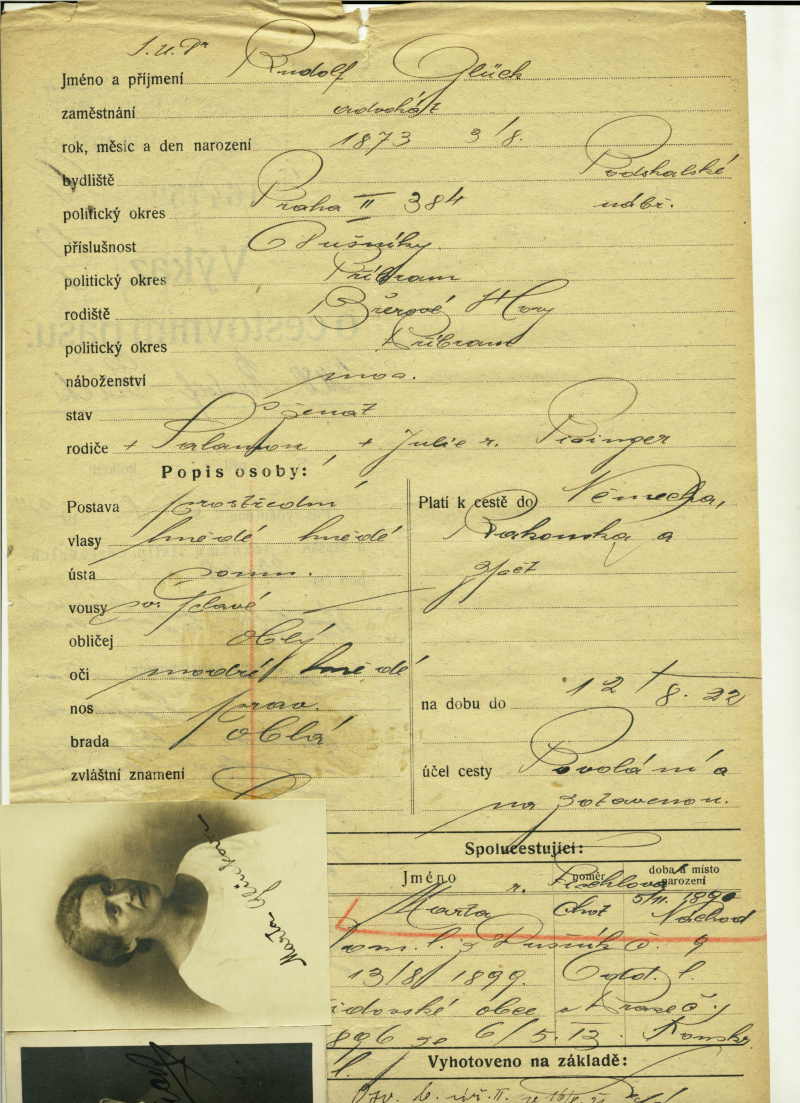 J.U.Dr
Jméno a příjmení Rudolf Glück
zaměstnání advokát
rok, měsíc a den narození 1873 3/8.
bydliště Podskalské
politický okres Praha II 384 nábř.
příslušnost Pušníky
politický okres Příbram
rodiště Březové Hory
politický okres Příbram
náboženství mos.
stav ženat
rodiče + Salamon, + Julie r. Pisinger
Popis osoby:
Postava prostřední
vlasy hnědé hnědé
ústa norm.
vousy plavé
obličej oblý
oči modré/ hnědé
nos prav.
brada oblá
zvláštní znamení
Platí k cestě do Německa,
Rakouska a
zpět
na dobu do 12/8. 22
účel cesty Povolání a
na zotavenou.
Spolucestující:
Jméno poměr doba a místo narození
r. 5/11. 1890
Marta choť Náchod
dom. l. z č. 9
13/8/ 1899. Odd. l.
židovské obce v č. j.
896 ze 6/5.13.
Vyhotoveno na základě:
Marta Glücková